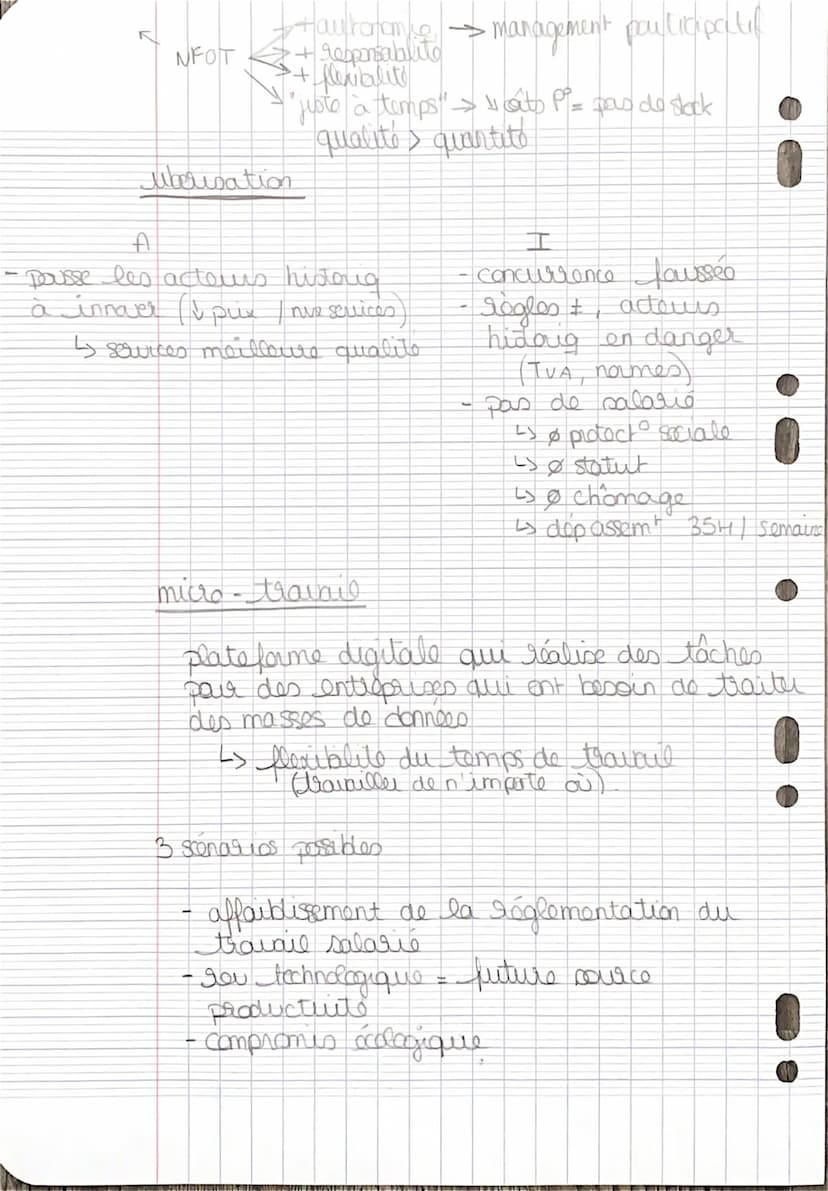 + autonomie → management participatif
NFOT + responsabilité
+ flexibilité
"juste à temps" → ↓ câts P° = pas de stock
qualité > quantité
uberisation
A
- pousse les acteurs historiq
à innover (↓ prix / nvx services)
↳ services meilleure qualité
I
- concurrence faussée
- règles ≠, acteurs
historiq en danger
(TVA, normes)
- pas de salarié
↳ ø protect° sociale
↳ ø statut
↳ ø chômage
↳ dépassemt 35H / semaine
micro-travail
plateforme digitale qui réalise des tâches
pour des entreprises qui ont besoin de traiter
des masses de données
↳ flexibilité du temps de travail
(travailler de n'importe où).
3 scénarios possibles
- affaiblissement de la réglementation du
travail salarié
- rev technologique = future source
productivité
- compromis écologique